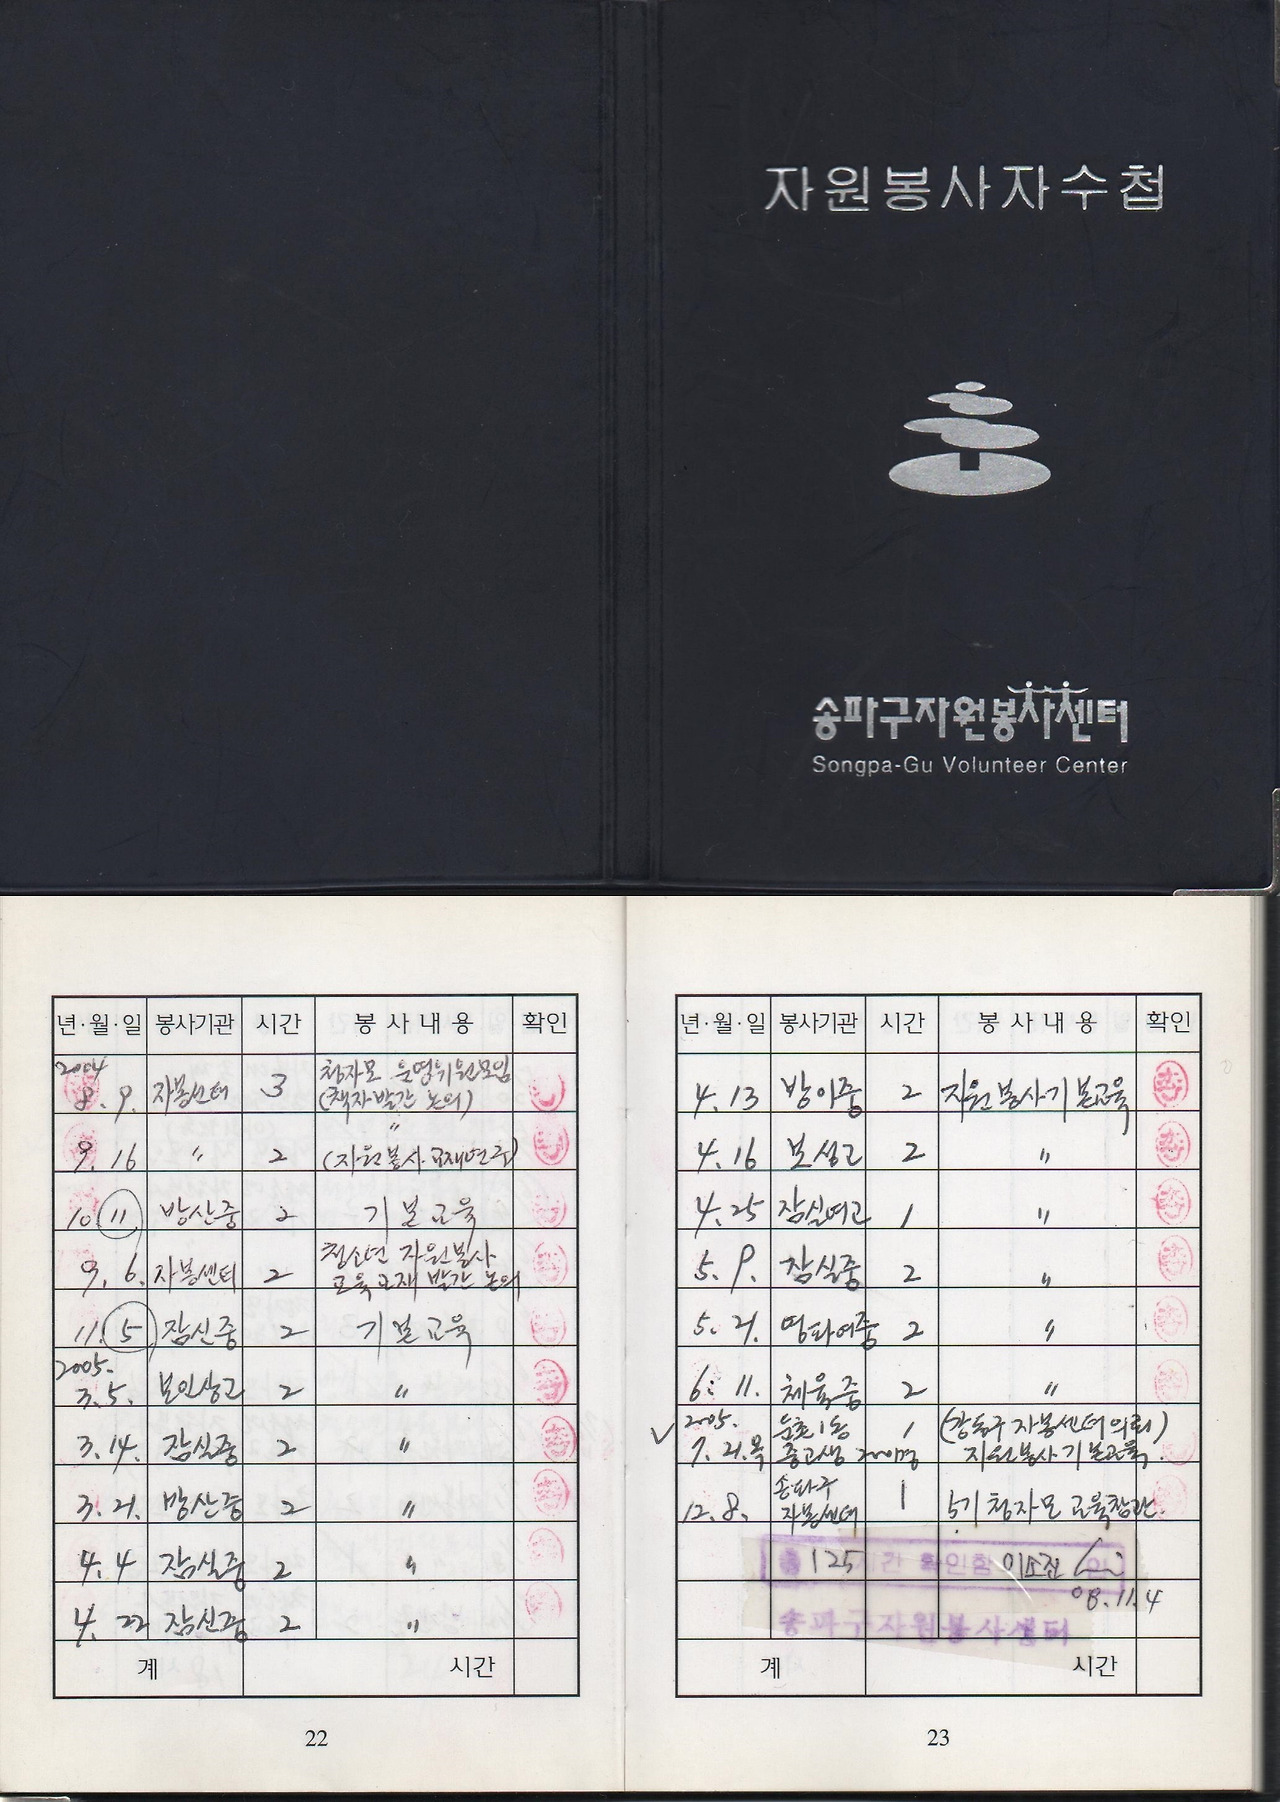 자원봉사자수첩
송파구자원봉사센터
Songpa-Gu Volunteer Center
년·월·일 봉사기관 시간 봉사내용 확인
2004
8. 9. 자봉센터 3 청자모 운영위원모임
(책자발간 논의)
9. 16 〃 2 〃
(자원봉사교재연구)
10 11 방산중 2 기본교육
9. 6. 자봉센터 2 청소년 자원봉사
교육교재 발간 논의
11. 5 잠신중 2 기본교육
2005.
3. 5. 보인상고 2 〃
3. 14. 잠실중 2 〃
3. 21. 방산중 2 〃
4. 4 잠실중 2 〃
4. 22 잠신중 2 〃
계 시간
22
년·월·일 봉사기관 시간 봉사내용 확인
4. 13 방이중 2 자원봉사기본교육
4. 16 보성고 2 〃
4. 25 잠실여고 1 〃
5. 9. 잠실중 2 〃
5. 21. 영파여중 2 〃
6. 11. 체육중 2 〃
2005. 둔촌1동 1 (강동구자봉센터의뢰)
7. 21. 목 중고생 200여명 자원봉사기본교육.
12. 8. 송파구 1 5기 청자모 교육참관
자봉센터
총 125 시간 확인함 이소진 인
08. 11. 4
송파구자원봉사센터
계 시간
23